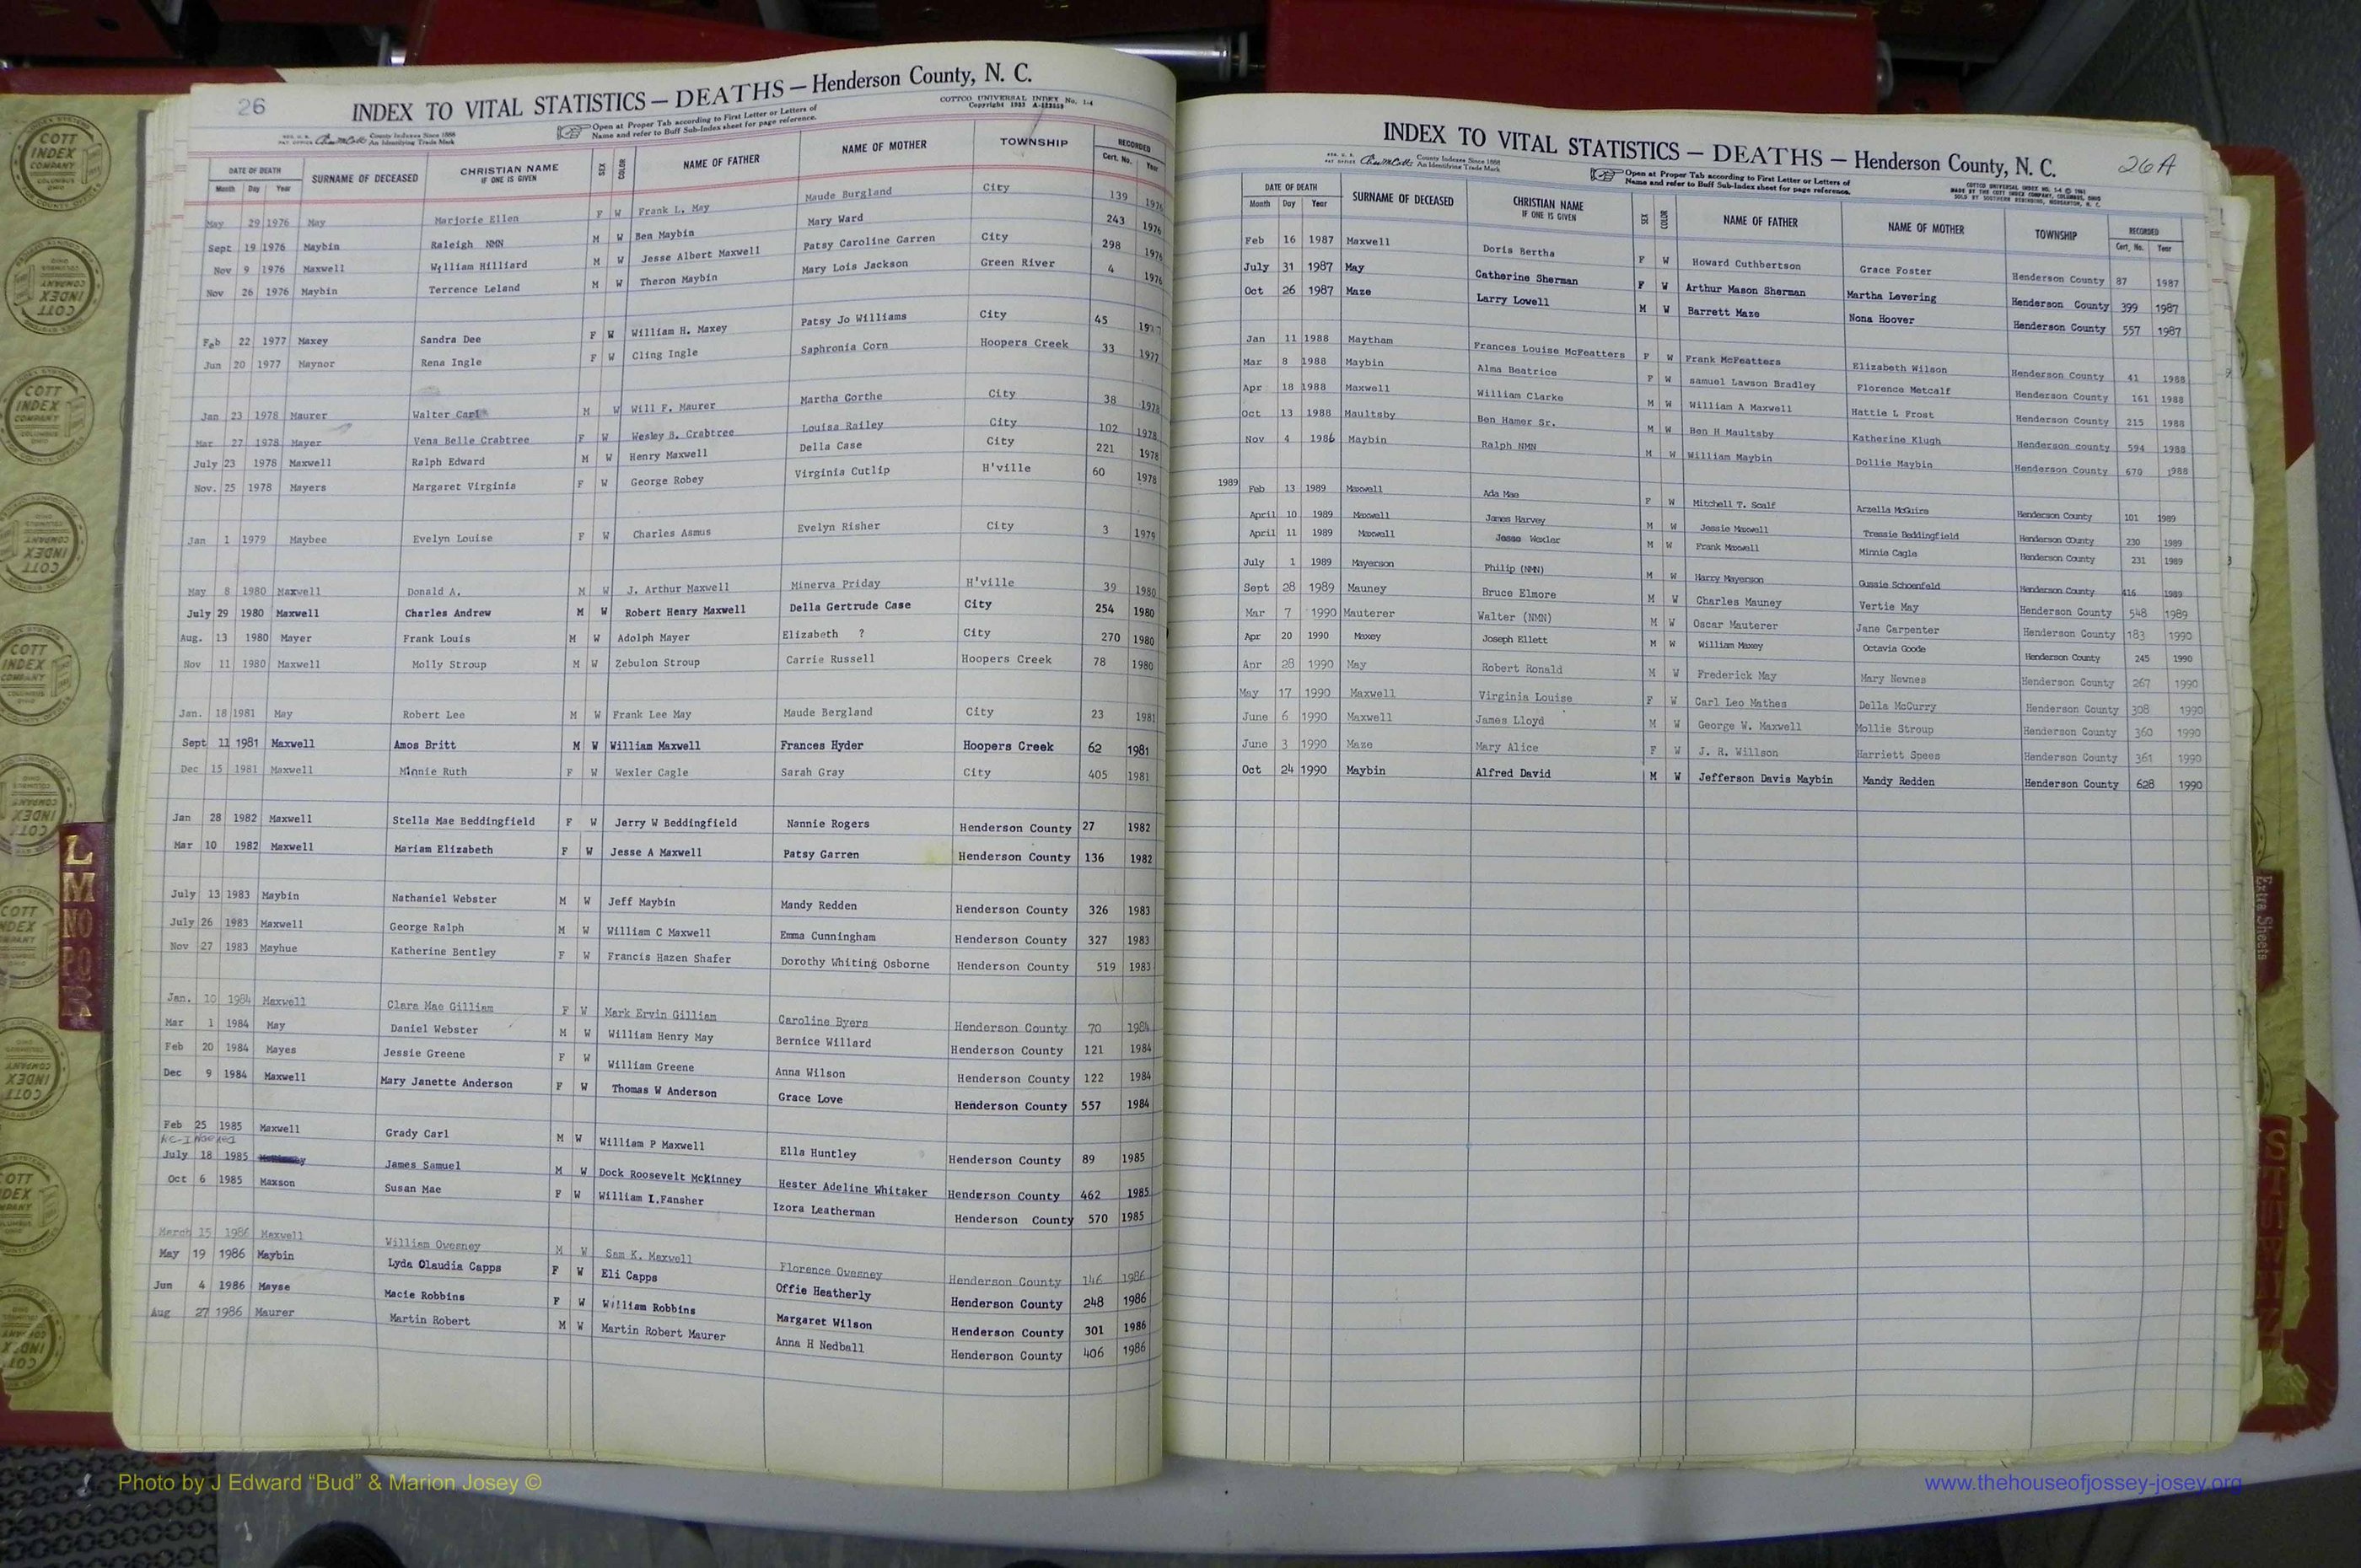 26
INDEX TO VITAL STATISTICS — DEATHS — Henderson County, N. C.
COTTCO UNIVERSAL INDEX No. 1-4
County Indexes Since 1888
An Identifying Trade Mark
Open at Proper Tab according to First Letter or Letters of
Name and refer to Buff Sub-Index sheet for page reference.
DATE OF DEATH SURNAME OF DECEASED CHRISTIAN NAME IF ONE IS GIVEN SEX COLOR NAME OF FATHER NAME OF MOTHER TOWNSHIP RECORDED
Month Day Year Cert. No. Year
May 29 1976 May Marjorie Ellen F W Frank L. May Maude Burgland City 139 1976
Sept 19 1976 Maybin Raleigh NMN M W Ben Maybin Mary Ward 243 1976
Nov 9 1976 Maxwell William Hilliard M W Jesse Albert Maxwell Patsy Caroline Garren City 298 1976
Nov 26 1976 Maybin Terrence Leland M W Theron Maybin Mary Lois Jackson Green River 4 1976
Feb 22 1977 Maxey Sandra Dee F W William H. Maxey Patsy Jo Williams City 45 1977
Jun 20 1977 Maynor Rena Ingle F W Cling Ingle Saphronia Corn Hoopers Creek 33 1977
Jan 23 1978 Maurer Walter Carl M W Will F. Maurer Martha Gorthe City 38 1978
Mar 27 1978 Mayer Vena Belle Crabtree F W Wesley B. Crabtree Louisa Railey City 102 1978
July 23 1978 Maxwell Ralph Edward M W Henry Maxwell Della Case City 221 1978
Nov. 25 1978 Mayers Margaret Virginia F W George Robey Virginia Cutlip H'ville 60 1978
Jan 1 1979 Maybee Evelyn Louise F W Charles Asmus Evelyn Risher City 3 1979
May 8 1980 Maxwell Donald A. M W J. Arthur Maxwell Minerva Priday H'ville 39 1980
July 29 1980 Maxwell Charles Andrew M W Robert Henry Maxwell Della Gertrude Case City 254 1980
Aug. 13 1980 Mayer Frank Louis M W Adolph Mayer Elizabeth ? City 270 1980
Nov 11 1980 Maxwell Molly Stroup M W Zebulon Stroup Carrie Russell Hoopers Creek 78 1980
Jan. 18 1981 May Robert Lee M W Frank Lee May Maude Bergland City 23 1981
Sept 11 1981 Maxwell Amos Britt M W William Maxwell Frances Hyder Hoopers Creek 62 1981
Dec 15 1981 Maxwell Minnie Ruth F W Wexler Cagle Sarah Gray City 405 1981
Jan 28 1982 Maxwell Stella Mae Beddingfield F W Jerry W Beddingfield Nannie Rogers Henderson County 27 1982
Mar 10 1982 Maxwell Mariam Elizabeth F W Jesse A Maxwell Patsy Garren Henderson County 136 1982
July 13 1983 Maybin Nathaniel Webster M W Jeff Maybin Mandy Redden Henderson County 326 1983
July 26 1983 Maxwell George Ralph M W William C Maxwell Emma Cunningham Henderson County 327 1983
Nov 27 1983 Mayhue Katherine Bentley F W Francis Hazen Shafer Dorothy Whiting Osborne Henderson County 519 1983
Jan. 10 1984 Maxwell Clara Mae Gilliam F W Mark Ervin Gilliam Caroline Byers Henderson County 70 1984
Mar 1 1984 May Daniel Webster M W William Henry May Bernice Willard Henderson County 121 1984
Feb 20 1984 Mayes Jessie Greene F W William Greene Anna Wilson Henderson County 122 1984
Dec 9 1984 Maxwell Mary Janette Anderson F W Thomas W Anderson Grace Love Henderson County 557 1984
Feb 25 1985 Maxwell Grady Carl M W William P Maxwell Ella Huntley Henderson County 89 1985
July 18 1985 James Samuel M W Dock Roosevelt McKinney Hester Adeline Whitaker Henderson County 462 1985
Oct 6 1985 Maxson Susan Mae F W William I.Fansher Izora Leatherman Henderson County 570 1985
March 15 1986 Maxwell William Owesney M W Sam K. Maxwell Florence Owesney Henderson County 146 1986
May 19 1986 Maybin Lyda Olaudia Capps F W Eli Capps Offie Heatherly Henderson County 248 1986
Jun 4 1986 Mayse Macie Robbins F W William Robbins Margaret Wilson Henderson County 301 1986
Aug 27 1986 Maurer Martin Robert M W Martin Robert Maurer Anna H Nedball Henderson County 406 1986
INDEX TO VITAL STATISTICS — DEATHS — Henderson County, N. C.
26A
County Indexes Since 1888
An Identifying Trade Mark
Open at Proper Tab according to First Letter or Letters of
Name and refer to Buff Sub-Index sheet for page reference.
DATE OF DEATH SURNAME OF DECEASED CHRISTIAN NAME IF ONE IS GIVEN SEX COLOR NAME OF FATHER NAME OF MOTHER TOWNSHIP RECORDED
Month Day Year Cert. No. Year
Feb 16 1987 Maxwell Doris Bertha F W Howard Cuthbertson Grace Foster Henderson County 87 1987
July 31 1987 May Catherine Sherman F W Arthur Mason Sherman Martha Levering Henderson County 399 1987
Oct 26 1987 Maze Larry Lowell M W Barrett Maze Nona Hoover Henderson County 557 1987
Jan 11 1988 Maytham Frances Louise McFeatters F W Frank McFeatters Elizabeth Wilson Henderson County 41 1988
Mar 8 1988 Maybin Alma Beatrice F W samuel Lawson Bradley Florence Metcalf Henderson County 161 1988
Apr 18 1988 Maxwell William Clarke M W William A Maxwell Hattie L Frost Henderson County 215 1988
Oct 13 1988 Maultsby Ben Hamer Sr. M W Ben H Maultsby Katherine Klugh Henderson county 594 1988
Nov 4 1986 Maybin Ralph NMN M W William Maybin Dollie Maybin Henderson County 670 1988
1989 Feb 13 1989 Maxwell Ada Mae F W Mitchell T. Scalf Arzella McGuire Henderson County 101 1989
April 10 1989 Maxwell James Harvey M W Jessie Maxwell Tressie Beddingfield Henderson COunty 230 1989
April 11 1989 Maxwell Jesse Wexler M W Frank Maxwell Minnie Cagle Henderson County 231 1989
July 1 1989 Mayerson Philip (NMN) M W Harry Mayerson Gussie Schoenfeld Henderson County 416 1989
Sept 28 1989 Mauney Bruce Elmore M W Charles Mauney Vertie May Henderson County 548 1989
Mar 7 1990 Mauterer Walter (NMN) M W Oscar Mauterer Jane Carpenter Henderson County 183 1990
Apr 20 1990 Maxey Joseph Ellett M W William Maxey Octavia Goode Henderson County 245 1990
Apr 28 1990 May Robert Ronald M W Frederick May Mary Newnes Henderson County 267 1990
May 17 1990 Maxwell Virginia Louise F W Carl Leo Mathes Della McCurry Henderson County 308 1990
June 6 1990 Maxwell James Lloyd M W George W. Maxwell Mollie Stroup Henderson County 360 1990
June 3 1990 Maze Mary Alice F W J. R. Willson Harriett Spees Henderson County 361 1990
Oct 24 1990 Maybin Alfred David M W Jefferson Davis Maybin Mandy Redden Henderson County 628 1990
L
M
NO
PQ
R
Extra Sheets
COTT INDEX COMPANY COLUMBUS OHIO
Photo by J Edward “Bud” & Marion Josey ©
www.thehouseofjossey-josey.org